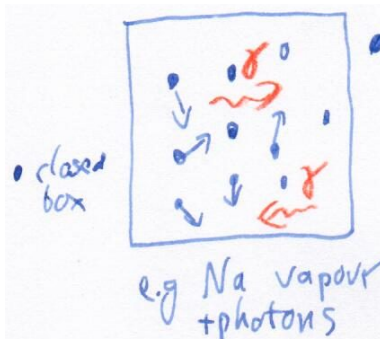 γ
• closed
box
γ
e.g Na vapour
+photons